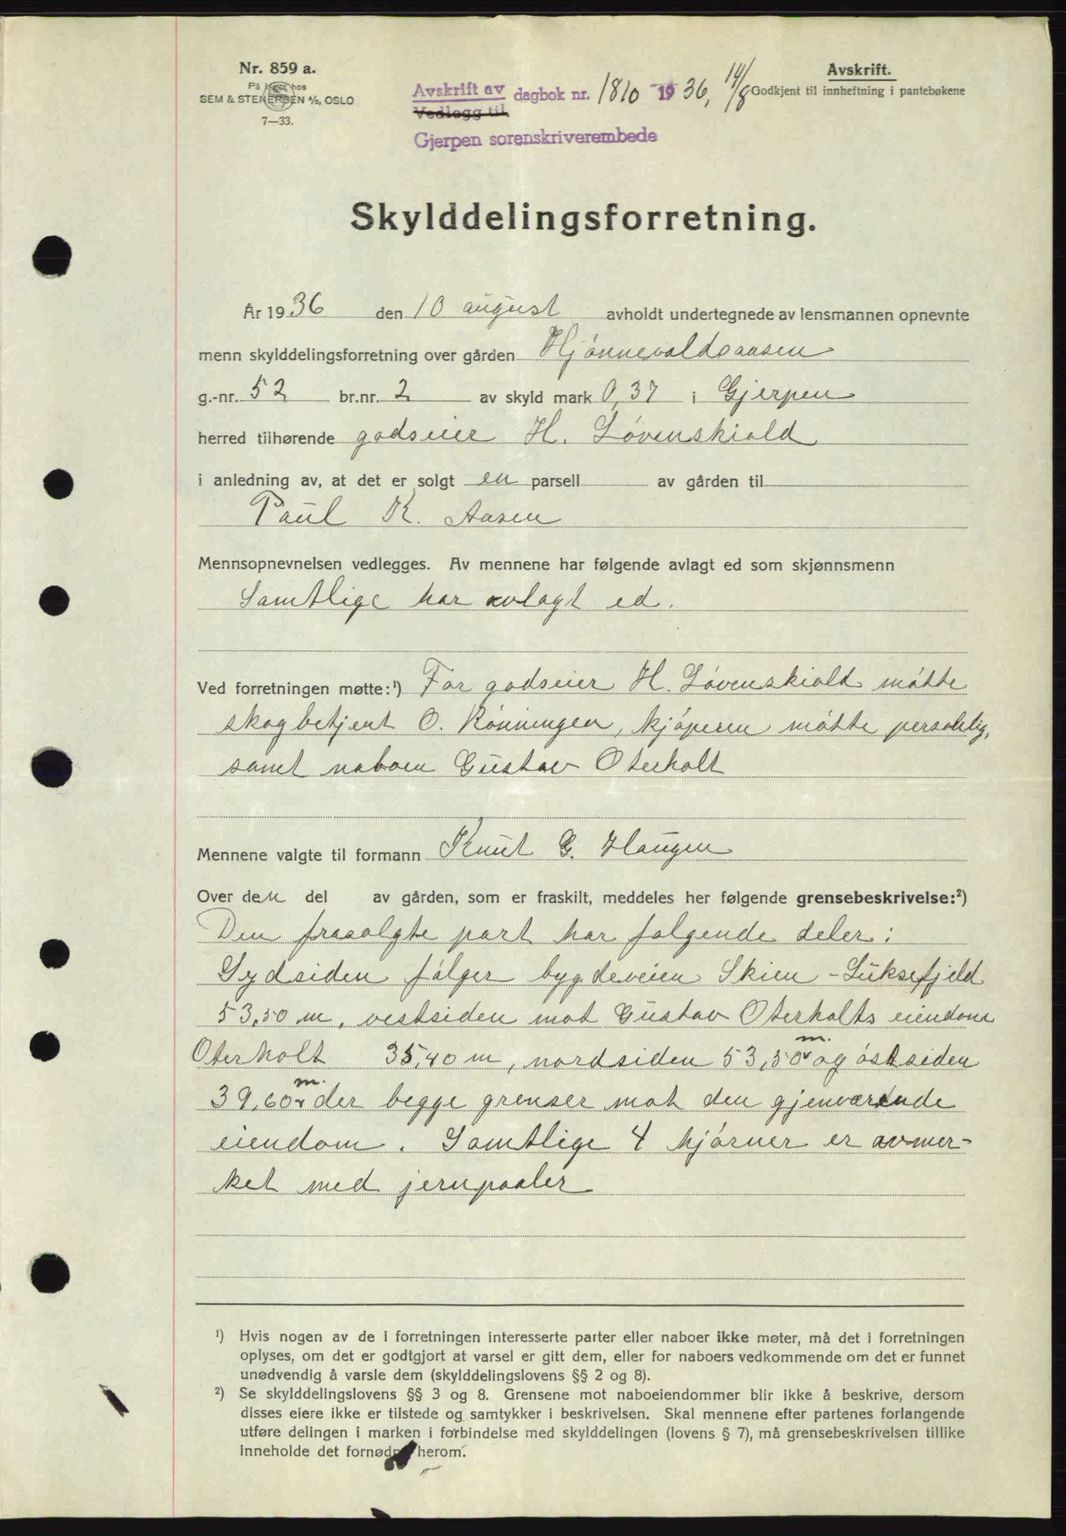 Nr. 859 a.
På lager hos
SEM & STENERSEN A/S, OSLO
7—33.
Avskrift av dagbok nr. 1810 - 1936, 14/8
Vedlegg til
Gjerpen sorenskriverembede
Avskrift.
Godkjent til innheftning i pantebøkene
Skylddelingsforretning.
År 1936 den 10 august avholdt undertegnede av lensmannen opnevnte
menn skylddelingsforretning over gården Hjönnevaldsaasen
g.-nr. 52 br.nr. 2 av skyld mark 0,37 i Gjerpen
herred tilhørende godseier H. Lövenskiold
i anledning av, at det er solgt en parsell av gården til
Paul K. Aasen
Mennsopnevnelsen vedlegges. Av mennene har følgende avlagt ed som skjønnsmenn
Samtlige har avlagt ed.
Ved forretningen møtte:¹) For godseier H. Lövenskiold mötte
skogbetjent O. Rönningen, kjöperen mötte personlig,
samt naboen Gustav Oterholt
Mennene valgte til formann Knut G. Haugen
Over den del av gården, som er fraskilt, meddeles her følgende grensebeskrivelse:²)
Den frasolgte part har følgende deler:
Sydsiden fölger bygdeveien Skien - Luksefjeld
53,50 m, vestsiden mot Gustav Oterholts eiendom
Oterholt 35,40 m, nordsiden 53,50 m. og östsiden
39,60 m. der begge grenser mot den gjenværende
eiendom. Samtlige 4 hjörner er avmer-
ket med jernpaaler
¹) Hvis nogen av de i forretningen interesserte parter eller naboer ikke møter, må det i forretningen
oplyses, om det er godtgjort at varsel er gitt dem, eller for naboers vedkommende om det er funnet
unødvendig å varsle dem (skylddelingslovens §§ 2 og 8).
²) Se skylddelingslovens §§ 3 og 8. Grensene mot naboeiendommer blir ikke å beskrive, dersom
disses eiere ikke er tilstede og samtykker i beskrivelsen. Skal mennene efter partenes forlangende
utføre delingen i marken i forbindelse med skylddelingen (lovens § 7), må grensebeskrivelsen tillike
inneholde det fornødne herom.